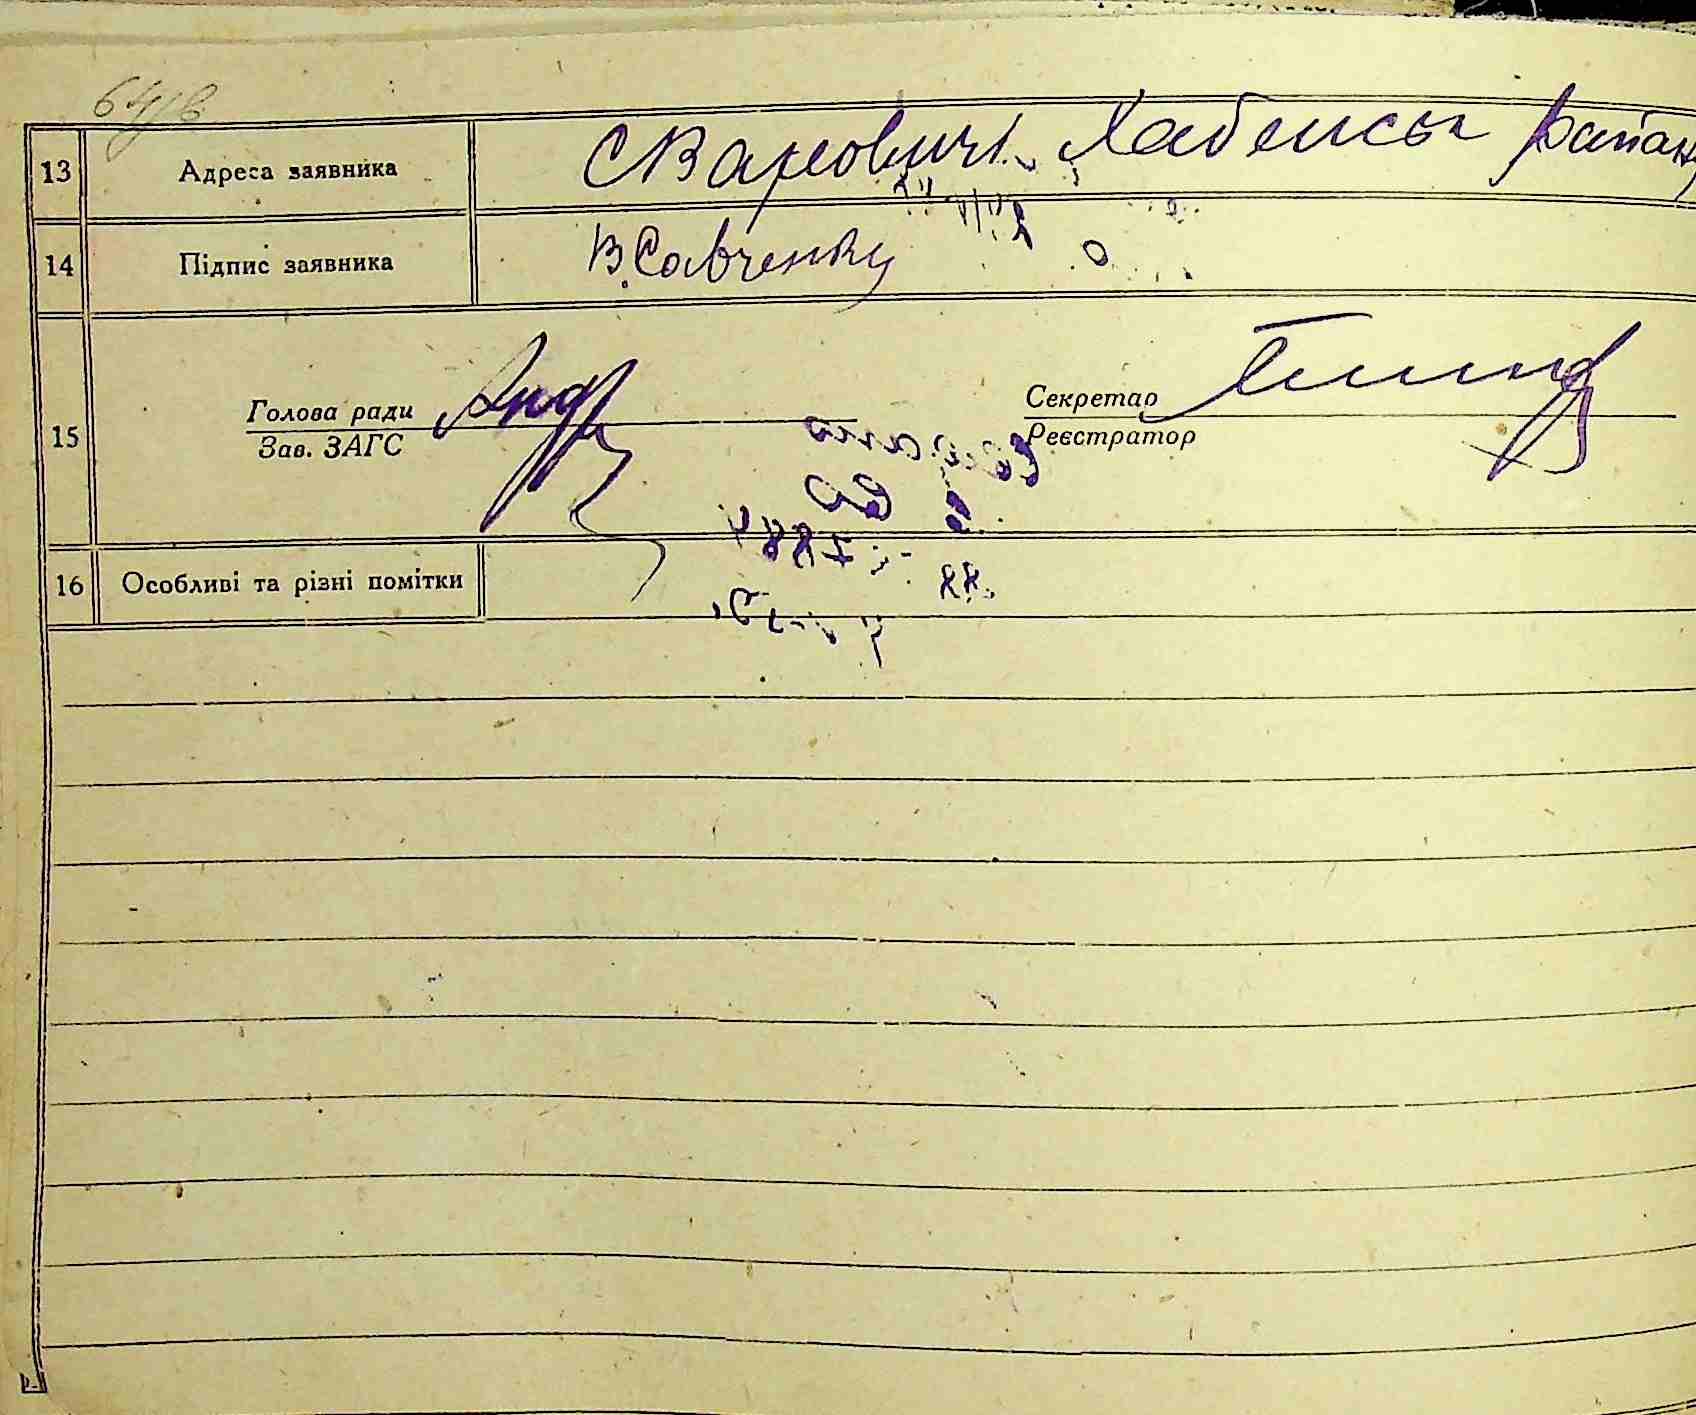 64/в
13 Адреса заявника с Варовичі Хабенськ район
14 Підпис заявника В Савченку
15 Голова ради Секретар
Зав. ЗАГС Реєстратор
16 Особливі та різні помітки